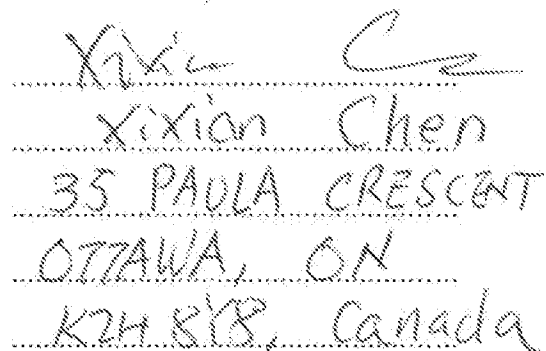 Xixian C
Xixian Chen
35 PAULA CRESCENT
OTTAWA, ON
K2H 8Y8, Canada